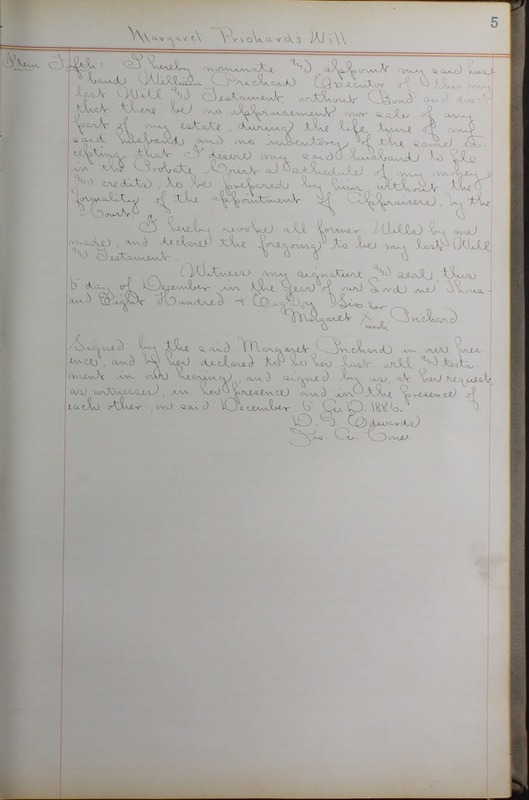 5
Margaret Prichard's Will
Item Fifth: I hereby nominate and appoint my said hus-
band William Prichard Executor of this my
last Will and Testament, without Bond and direct
that there be no appraisement nor sale of any
part of my estate, during the life time of my
said husband, and no inventory of the same, ex-
cepting that I desire my said husband to file
in the Probate Court a schedule of my moneys
and credits, to be prepared by him, without the
formality of the appointment of Appraisers by the
Court.
I hereby revoke all former Wills by me
made, and declare the foregoing to be my last Will
and Testament.
Witness my signature and seal this
6 day of December in the year of our Lord one Thous-
and Eight Hundred + Eighty Six her
Margaret X Prichard
mark
Signed by the said Margaret Prichard in our pres-
ence, and by her declared to be her last will and testa-
ment in our hearing, and signed by us at her request,
as witnesses, in her presence and in the presence of
each other, on said December 6 A.D. 1886.
D. S. Edwards
Jno. A. Cone